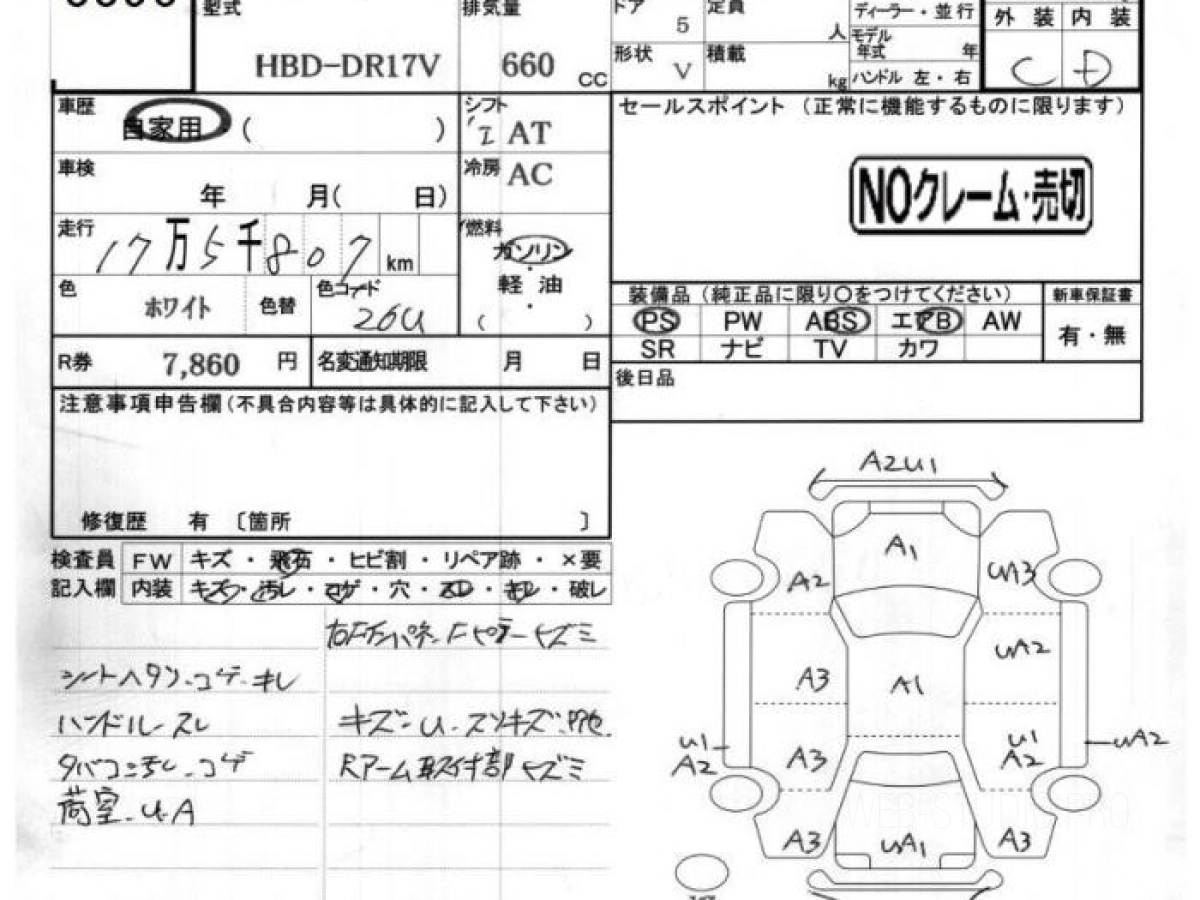 型式 排気量 ドア 5 定員 人 ディーラー・並行 外装 内装
HBD-DR17V 660 CC モデル年式 年
形状 V 積載 kg ハンドル 左・右 C D
車歴 自家用 ( )
シフト AT
セールスポイント (正常に機能するものに限ります)
車検 年 月( 日)
冷房 AC
NOクレーム・売切
走行 17万5千807 km
燃料 ガソリン
軽・油
( )
色 ホワイト 色替 色コード 26U
装備品 (純正品に限り○をつけてください) 新車保証書
PS PW ABS エアB AW 有・無
SR ナビ TV カワ
R券 7,860 円 名変通知期限 月 日
後日品
注意事項申告欄(不具合内容等は具体的に記入して下さい)
修復歴 有 〔箇所 〕
検査員 FW キズ・飛石・ヒビ割・リペア跡・×要
記入欄 内装 キズ・汚レ・コゲ・穴・スレ・キレ・破レ
シートヘタリ・コゲ・キレ
ハンドルスレ
タバコ汚レ・コゲ
荷室・U・A
キズ・U・スリキズ
Rアーム取付部キズミ
A2U1
A1
A2
UA3
UA2
A3
A1
U1
A2
A3
U1
A2
UA2
A3
UA1
A3
WEB-STUDIO PRO